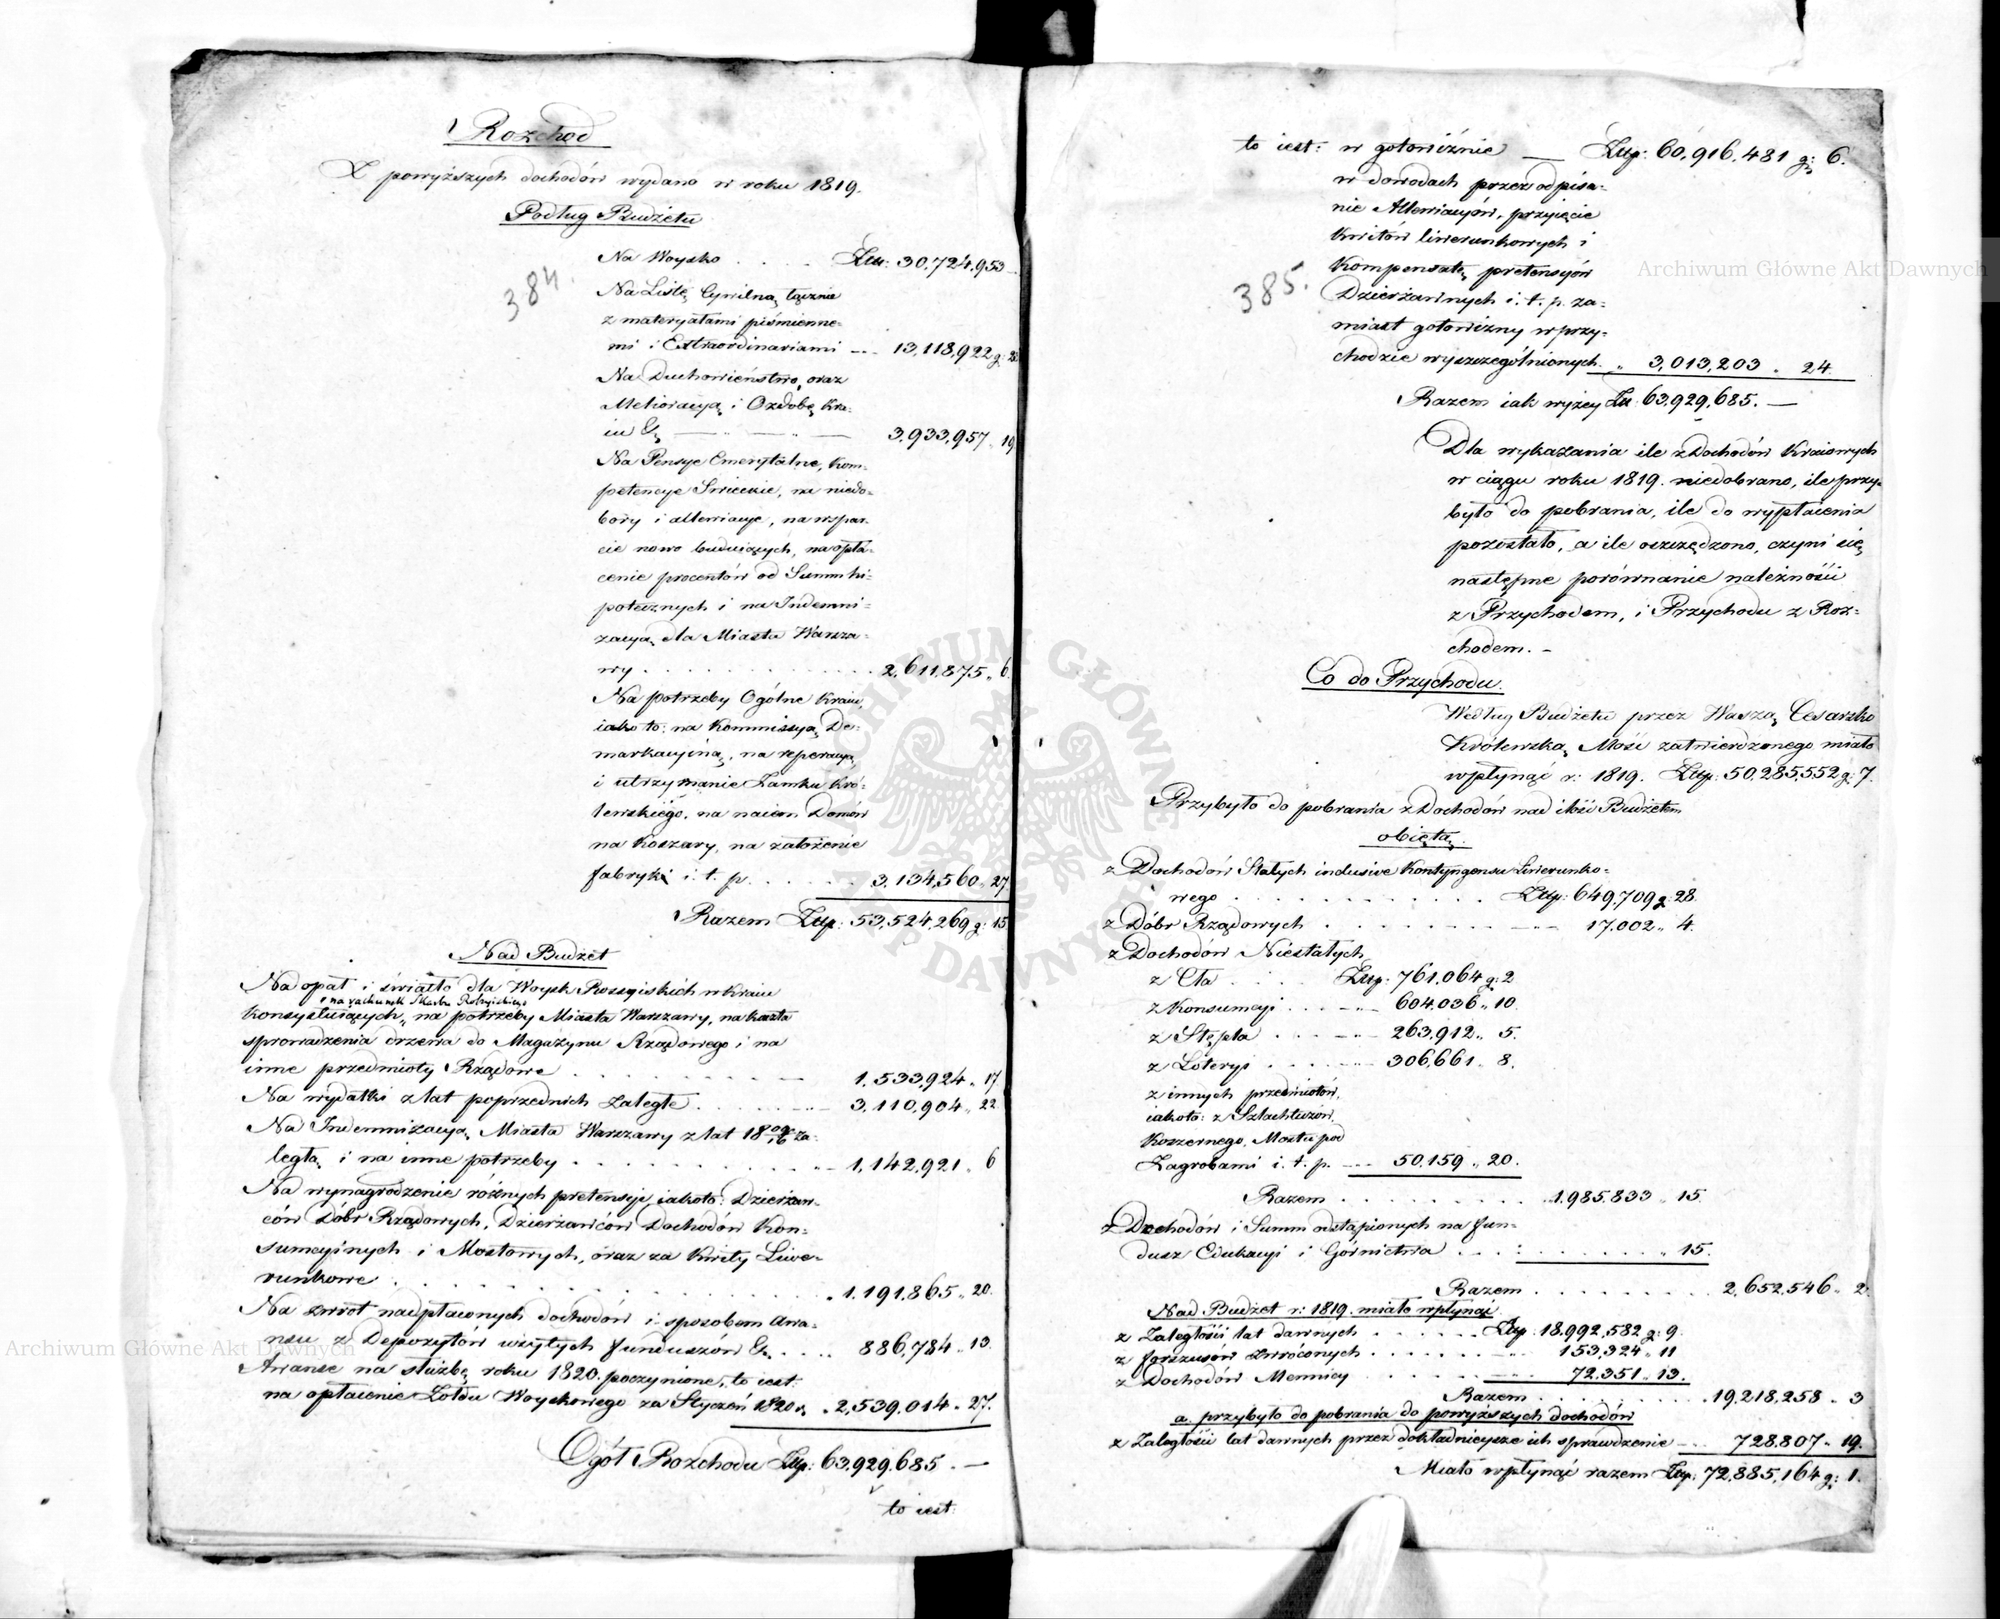 Rozchod
Z powyższych dochodów wydano w roku 1819.
Podług Budżetu
384.
Na Woysko . . . . Złtp: 30,724,953 —
Na Listę Cywilną łącznie
z materyałami piśmienne-
mi i Extraordinariami --- 13,118,922 g: 28
Na Duchowieństwo, oraz
Melioracyą i Ozdobę Kra-
iu &c — — „ — 3,933,957 „ 19
Na Pensye Emerytalne, kom-
petencye Swieckie, na niedo-
bory i allewiacye, na wspar-
cie nowo buduiących, na opła-
cenie procentów od Summ hi-
potecznych i na Indemni-
zacyą dla Miasta Warsza-
wy . . . . . . . . . . . . 2,611,875 „ 6
Na potrzeby Ogólne Kraiu,
iako to: na Kommissyą De-
markacyiną, na reperacyą
i utrzymanie Zamku Kró-
lewskiego, na naiem Domów
na Koszary, na założenie
fabryki i. t. p. . . . . . . 3,134,560 „ 27
Razem Złtp: 53,524,269 g: 15
Nad Budżet
Na opał i światło dla Woysk Rossyiskich w Kraiu
i na rachunek Skarbu Rossyiskiego
konsystuiących, na potrzeby Miasta Warszawy, na kaszta
sprowadzenia drzewa do Magazynu Rządowego i na
inne przedmioty Rządowe . . . . . . . . 1,533,924 „ 17
Na wydatki z lat poprzednich zaległe . . . . . . 3,110,904 „ 22
Na Indemnizacyą Miasta Warszawy z lat 18 09/16 za-
ległą i na inne potrzeby . . . . . . . . . 1,142,921 „ 6
Na wynagrodzenie różnych pretensyi, iakoto: Dzierżaw-
ców Dóbr Rządowych, Dzierżawców Dochodów Kon-
sumcyinych i Mostowych, oraz za Kwity Liwe-
runkowe . . . . . . . . . . . „ 1,191,865 „ 20
Na zwrot nadpłaconych dochodów i sposobem awa-
nsu z Depozytów wziętych funduszów &c . . . . 886,784 „ 13
Awanse na służbę roku 1820. poczynione, to iest:
na opłacenie Żołdu Woyskowego za Styczeń 1820 r. „ 2,539,014 „ 27.
Ogół Rozchodu Złtp: 63,929,685. —
to iest:
to iest: w gotowiźnie — Złtp: 60,916,481 g: 6.
w dowodach przez odpisa-
nie Allewiacyów, przyięcie
Kwitów liwerunkowych i
Kompensatę pretensyów
385.
Dzierżawnych i. t. p. za-
miast gotowizny w przy-
chodzie wyszczególnionych. „ 3,013,203 „ 24.
Razem iak wyżey Złt: 63,929,685. —
Dla wykazania ile z Dochodów Kraiowych
w ciągu roku 1819. niedobrano, ile przy-
było do pobrania, ile do wypłacenia
pozostało, a ile oszczędzono, czyni się
następne porównanie należności
z Przychodem, i Przychodu z Roz-
chodem. —
Co do Przychodu.
Według Budżetu przez Waszą Cesarsko
Królewską Mość zatwierdzonego miało
wpłynąć r: 1819. Złtp: 50,285,552 g: 7.
Przybyło do pobrania z Dochodów nad ilość Budżetem
obiętą.
z Dochodów Stałych inclusive Kontyngensu Liwerunko-
wego . . . . . . . . . . . Złtp: 649,709 g: 28.
z Dóbr Rządowych . . . . . . . . 17,002 „ 4.
z Dochodów Niestałych
z Cła . . . . Złtp: 761,064 g: 2
z Konsumcyi . . . --- 604,036 „ 10.
z Stępla . . . . --- 263,912 „ 5.
z Loteryi . . . . --- 306,661 „ 8.
z innych przedmiotów,
iakoto: z Szlachtuzów,
Koszernego, Mostu pod
Zagrobami i. t. p. --- 50,159 „ 20.
Razem . . . . . . . . . 1,985,833 „ 15.
z Dochodów i Summ odstąpionych na fun-
dusz Edukacyi i Górnictwa . . . . . . . . „ 15.
Razem . . . . . . . . 2,652,546 „ 2
Nad Budżet r: 1819. miało wpłynąć
z Zaległości lat dawnych . . . . . . Złtp: 18,992,582 g: 9.
z forszusów zwróconych . . . . . . . 153,324 „ 11
z Dochodów Mennicy . . . . . . . 72,351 „ 13.
Razem . . . . . . . 19,218,258 „ 3
a przybyło do pobrania do powyższych dochodów
z Zaległości lat dawnych przez dokładnieysze ich sprawdzenie --- 728,807 „ 19.
Miało wpłynąć razem Złtp: 72,885,164 g: 1.
Archiwum Główne Akt Dawnych
Archiwum Główne Akt Dawnych
ARCHIWUM GŁÓWNE
AKT DAWNYCH